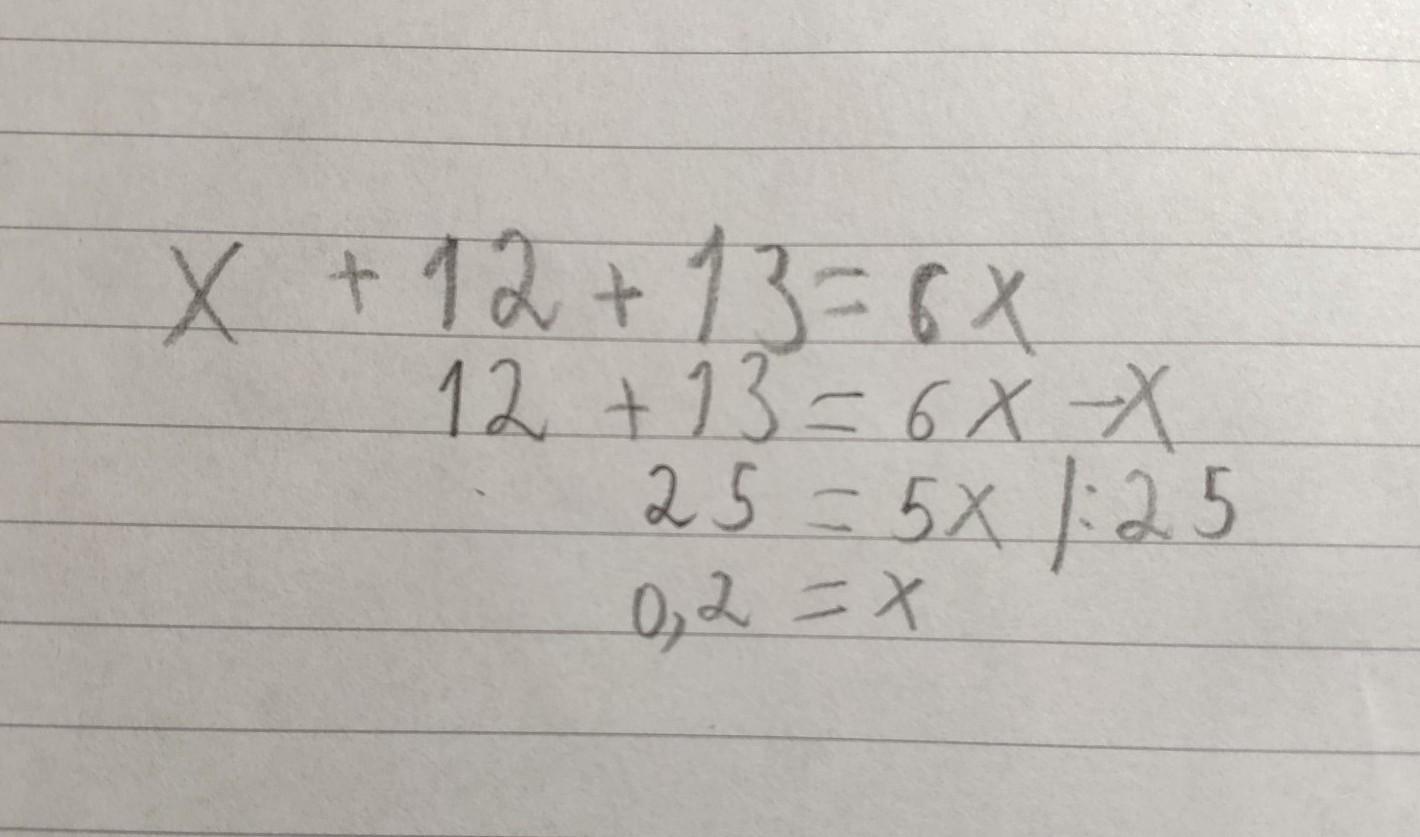 x + 12 + 13 = 6x
12 + 13 = 6x - x
25 = 5x |:25
0,2 = x